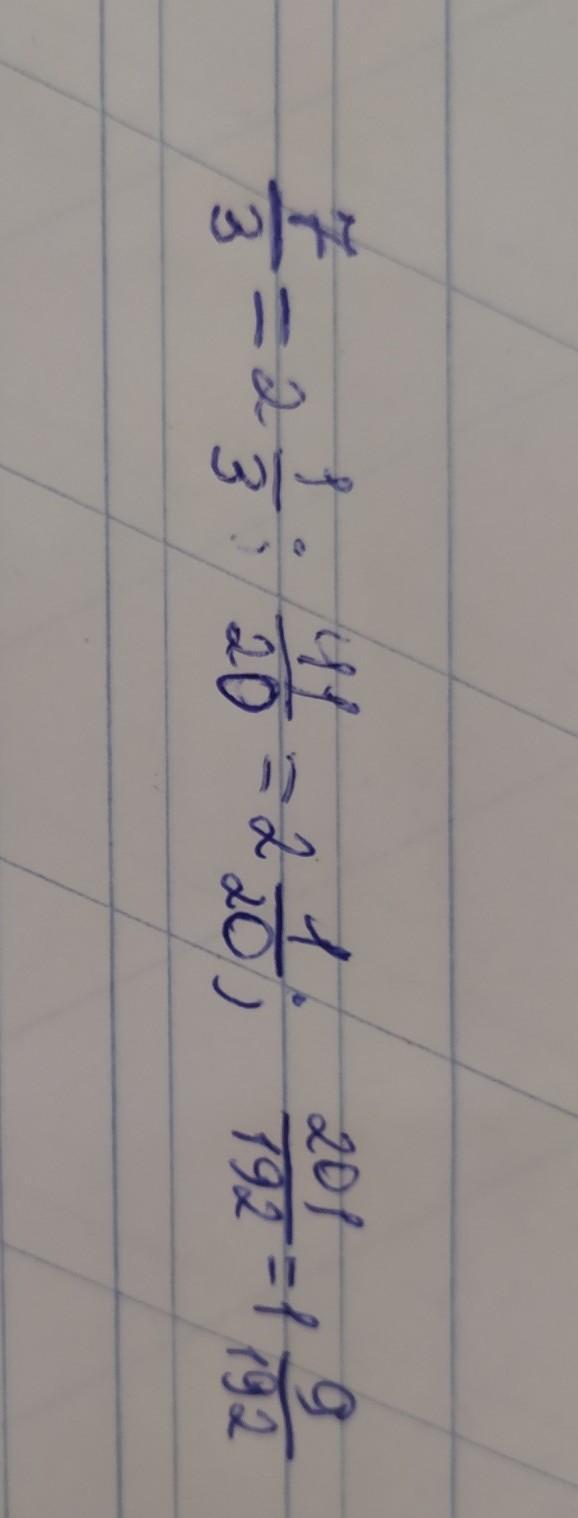 7/3 = 2 1/3; 41/20 = 2 1/20; 201/192 = 1 9/192